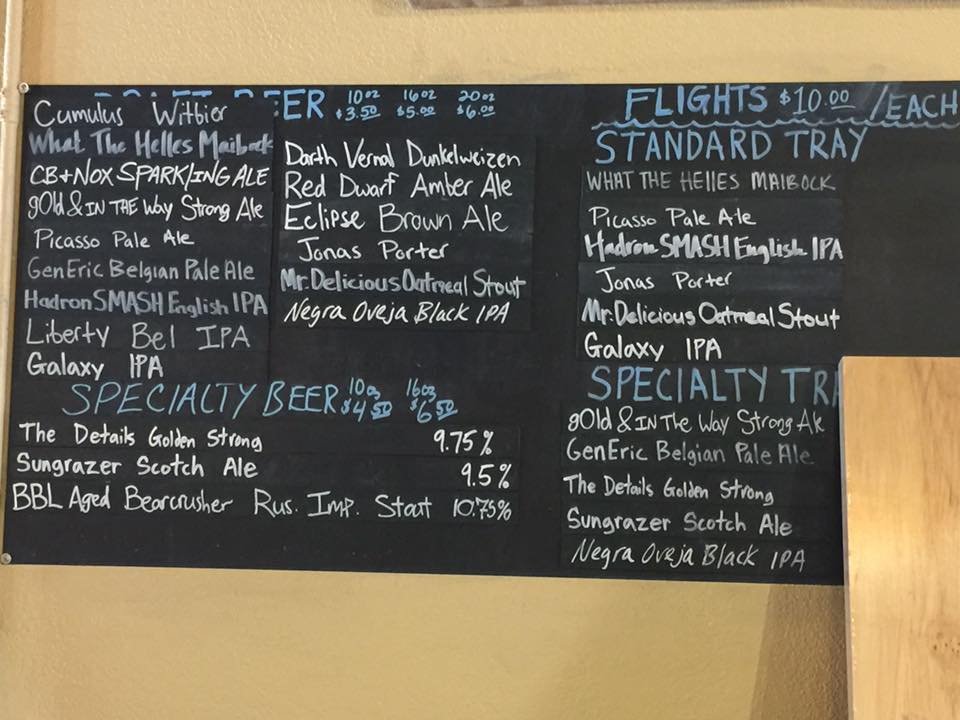 BEER 10oz 16oz 20oz
$3.50 $5.00 $6.00
Cumulus Witbier
What The Helles Maibock
CB+NOX SPARK/ING ALE
gOld & IN THE Way Strong Ale
Picasso Pale Ale
GenEric Belgian Pale Ale
Hadron SMASH English IPA
Liberty Bel IPA
Galaxy IPA
Darth Vernal Dunkelweizen
Red Dwarf Amber Ale
Eclipse Brown Ale
Jonas Porter
Mr. Delicious Oatmeal Stout
Negra Oveja Black IPA
SPECIALTY BEER 10oz 16oz
$4.50 $6.50
The Details Golden Strong 9.75%
Sungrazer Scotch Ale 9.5%
BBL Aged Bearcrusher Rus. Imp. Stout 10.75%
FLIGHTS $10.00 /EACH
STANDARD TRAY
WHAT THE HElles MAIBOCK
Picasso Pale Ale
Hadron SMASH English IPA
Jonas Porter
Mr. Delicious Oatmeal Stout
Galaxy IPA
SPECIALTY TRA
gOld & IN The Way Strong Ale
GenEric Belgian Pale Ale
The Details Golden Strong
Sungrazer Scotch Ale
Negra Oveja Black IPA